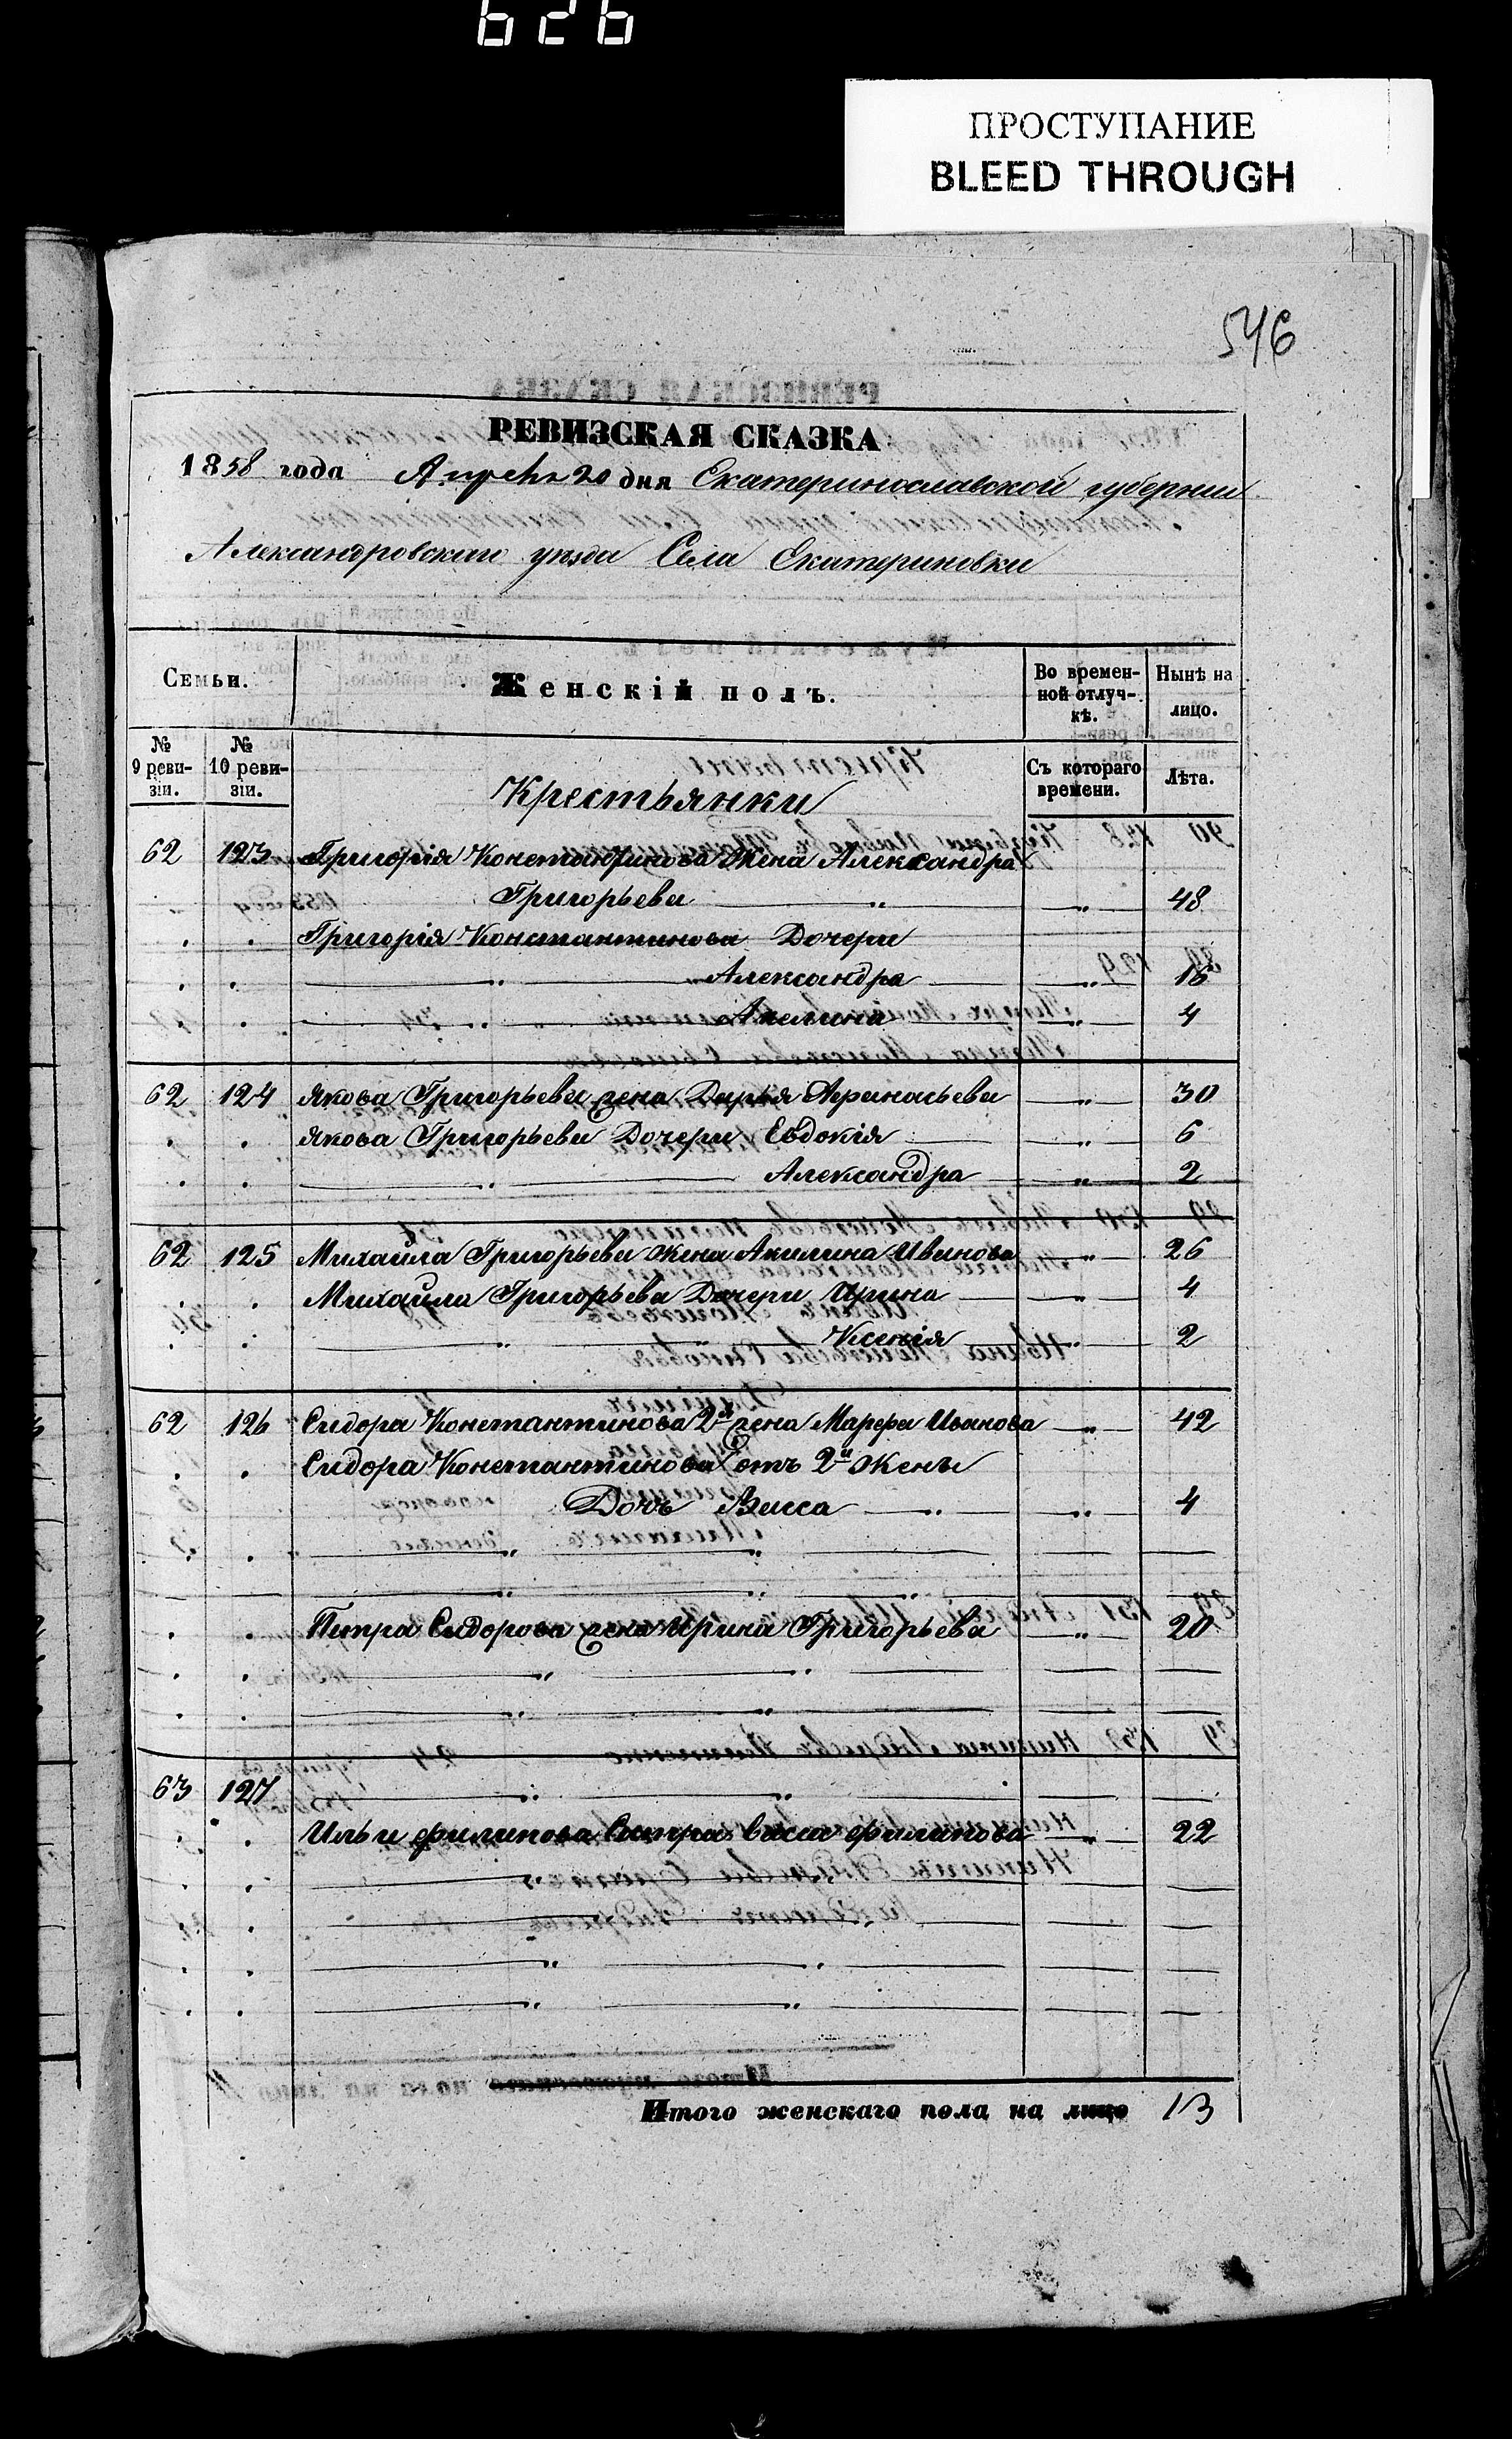 626
ПРОСТУПАНИЕ
BLEED THROUGH
546
РЕВИЗСКАЯ СКАЗКА
1858 года Апрель 20 дня Екатеринославской губернии
Александровскаго уезда Села Екатериновки
Семьи. Женскій полъ. Во времен-ной отлуч-кѣ. Нынѣ на лицо.
№ 9 реви-зіи. № 10 реви-зіи. Съ котораго времени. Лѣта.
Крестьянки
62 123 Григория Константинова Жена Александра
Григорьева " " 48
Григорія Константинова Дочери
" Александра " 16
" Акелина " 4
62 124 Якова Григорьева жена Дарья Афанасьева " 30
Якова Григорьева Дочери Евдокія " 6
" Александра " 2
62 125 Михайла Григорьева жена Акилина Иванова " 26
Михайла Григорьева Дочери Ирина " 4
" " Ксенія " 2
62 126 Сидора Константинова 2й жена Марфа Иванова " 42
Сидора Константинова от 2й жены
Дочь Васса " " 4
Петра Сидорова жена Ирина Григорьева " 20
63 127
Ильи филипова Систра васа филипова " 22
Итого женскаго пола на лицо 13